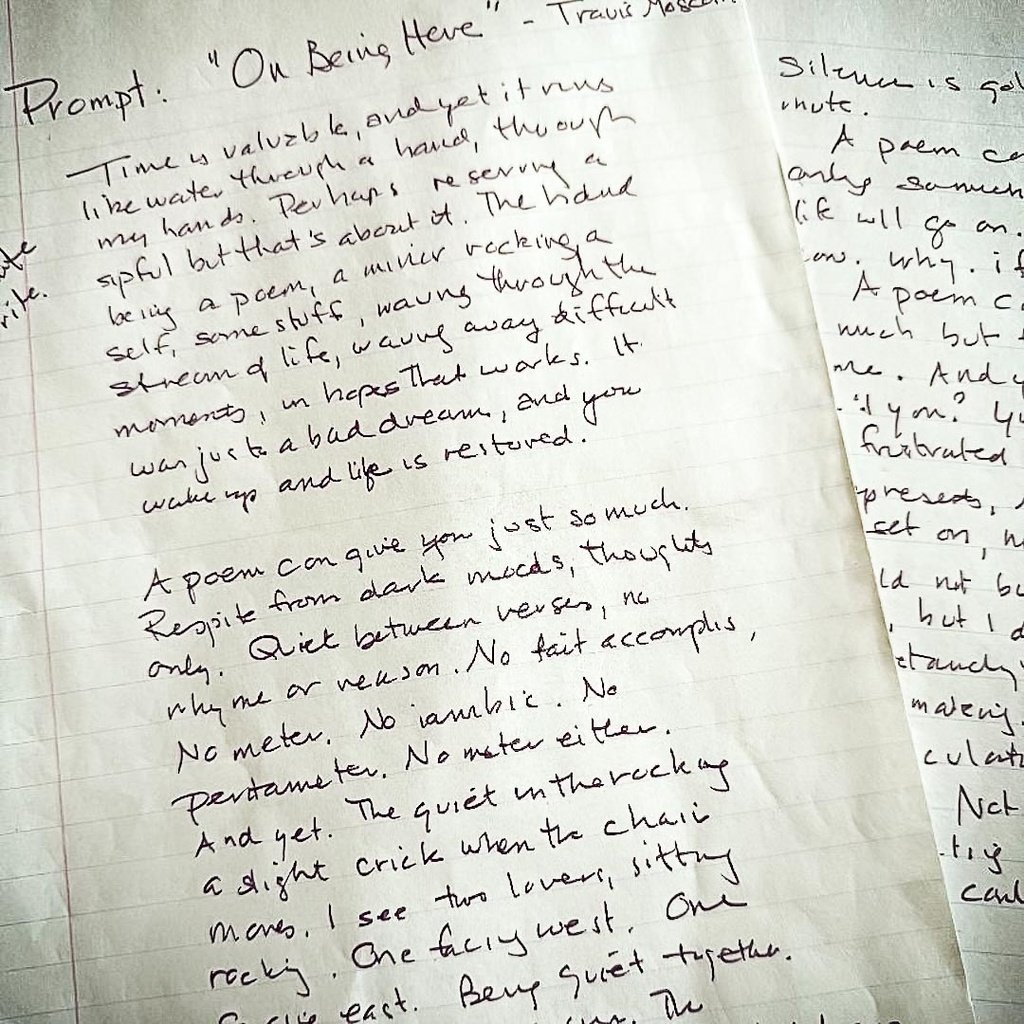 Prompt: "On Being Here" - Travis
Time is valuable, and yet it runs
like water through a hand, through
my hands. Perhaps reserving a
sipful but that's about it. The hand
being a poem, a mirror rocking a
self, some stuff, waving through the
stream of life, waving away difficult
moments, in hopes that works. It
was just a bad dream, and you
wake up and life is restored.
A poem can give you just so much.
Respite from dark moods, thoughts
only. Quiet between verses, no
rhyme or reason. No fait accomplis,
No meter. No iambic. No
pentameter. No meter either.
And yet. The quiet in the rocking
a slight crick when the chair
moves. I see two lovers, sitting
rocking. One facing west. One
east. Being quiet together.
The
Silence is
mute.
A poem
only so much
life will go on.
why. if
A poem
much but
me. And
you?
frustrated
set on,
not
, but I
making.
Not